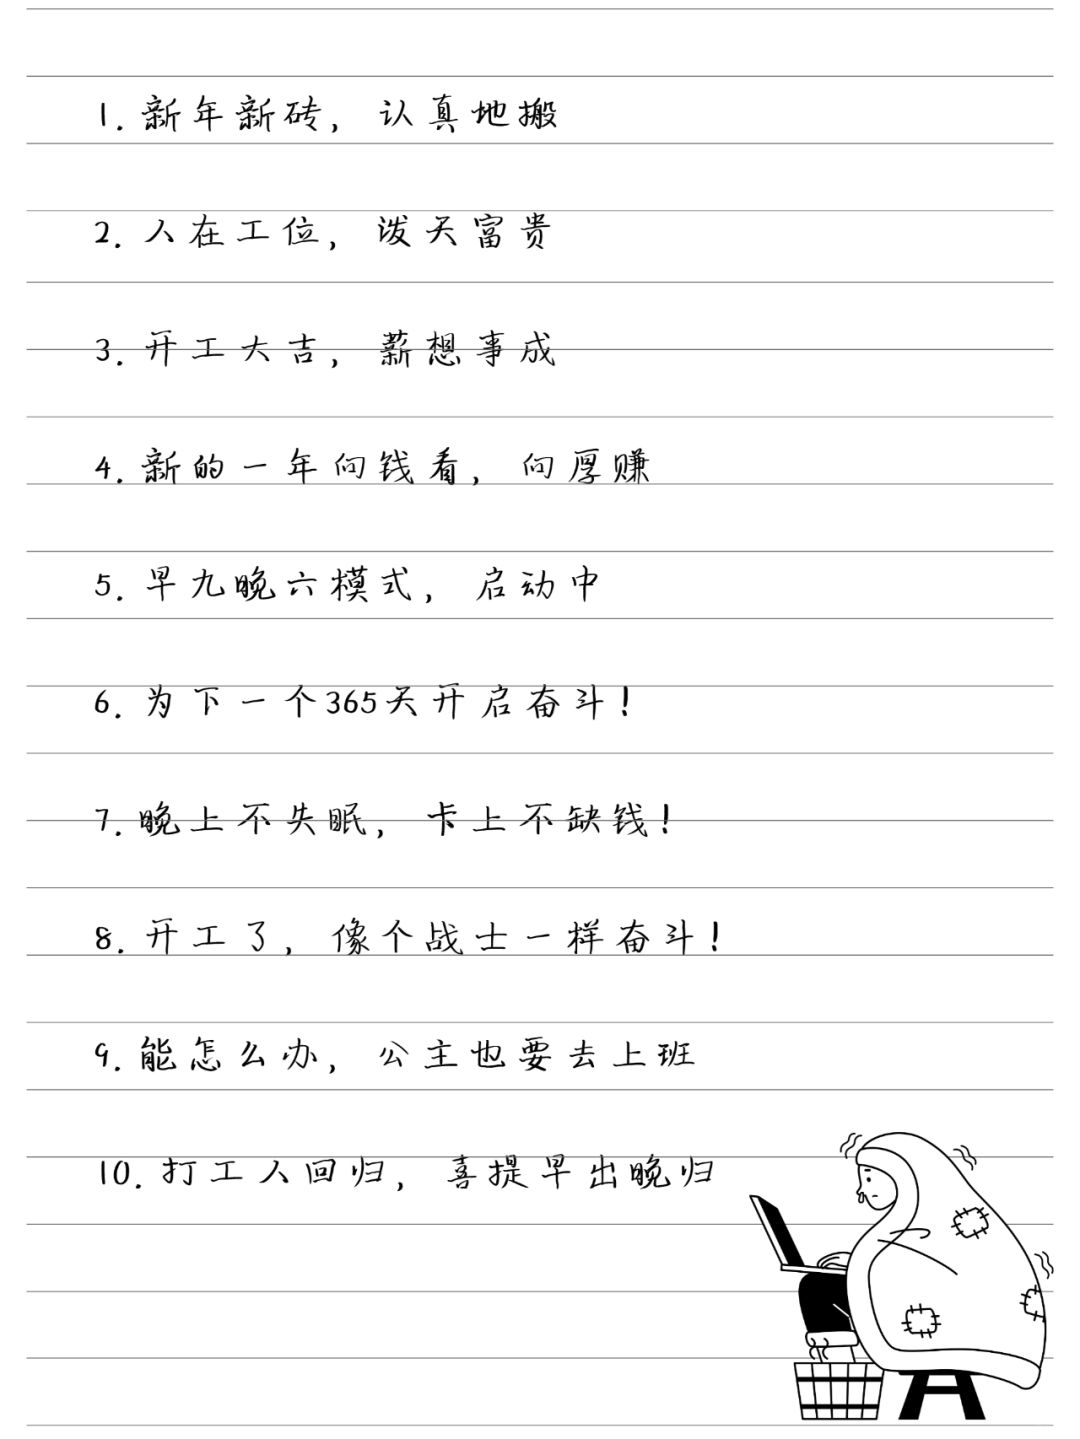 1. 新年新砖，认真地搬
2. 人在工位，泼天富贵
3. 开工大吉，薪想事成
4. 新的一年向钱看，向厚赚
5. 早九晚六模式，启动中
6. 为下一个365天开启奋斗！
7. 晚上不失眠，卡上不缺钱！
8. 开工了，像个战士一样奋斗！
9. 能怎么办，公主也要去上班
10. 打工人回归，喜提早出晚归